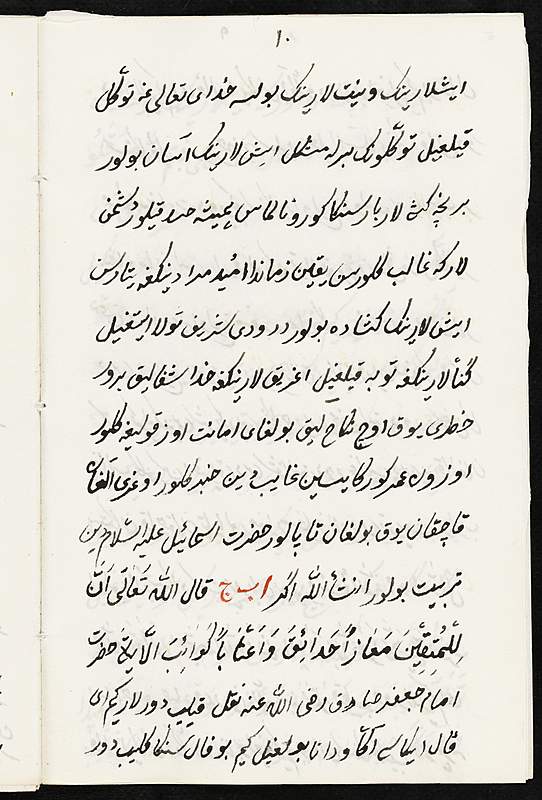 ۱۰
ایشلارینک و نیت لارینک بولسه خدای تعالی غه توکّل
قیلغیل توکّلونک بیرله مشکل ایش لارینک آسان بولور
بر نچه کشی لار بار سنکا کورونالماس همیشه حسد قیلور دشمن
لارکه غالب کلورسن یقین زماندا امید مرادینکغه یتارسن
ایش لارینک کشاده بولور درودی شریف تولا ایتغیل
کناً لارینکغه توبه قیلغیل اغریق لارینکغه خدا شفالیق برور
خطری یوق اوچ نکاح لیق بولغای امانت اوز قولیغه کلور
اوزون عمر کورکایسین غایب دین خبر کلور اوغری آلغان
قاچقان یوق بولغان تاپالور حضرت اسماعیل علیه السّلام دین
تربیت بولور انشأ اللّه اکر ا ب ج قال اللّه تَعَالٰی اَنَّ
لِلْمُتَّقِیْنَ مَفَازاً حَدَائِقَ وَاَعْنَاباً کَوَائِبَ الْآیة حضرت
امام جعفر صادق رضی اللّه عنه نقل قیلیب دورلار کیم ای
فال ایکاسی آکاه و دانا بولغیل کیم بو فال سنکا کلیب دور